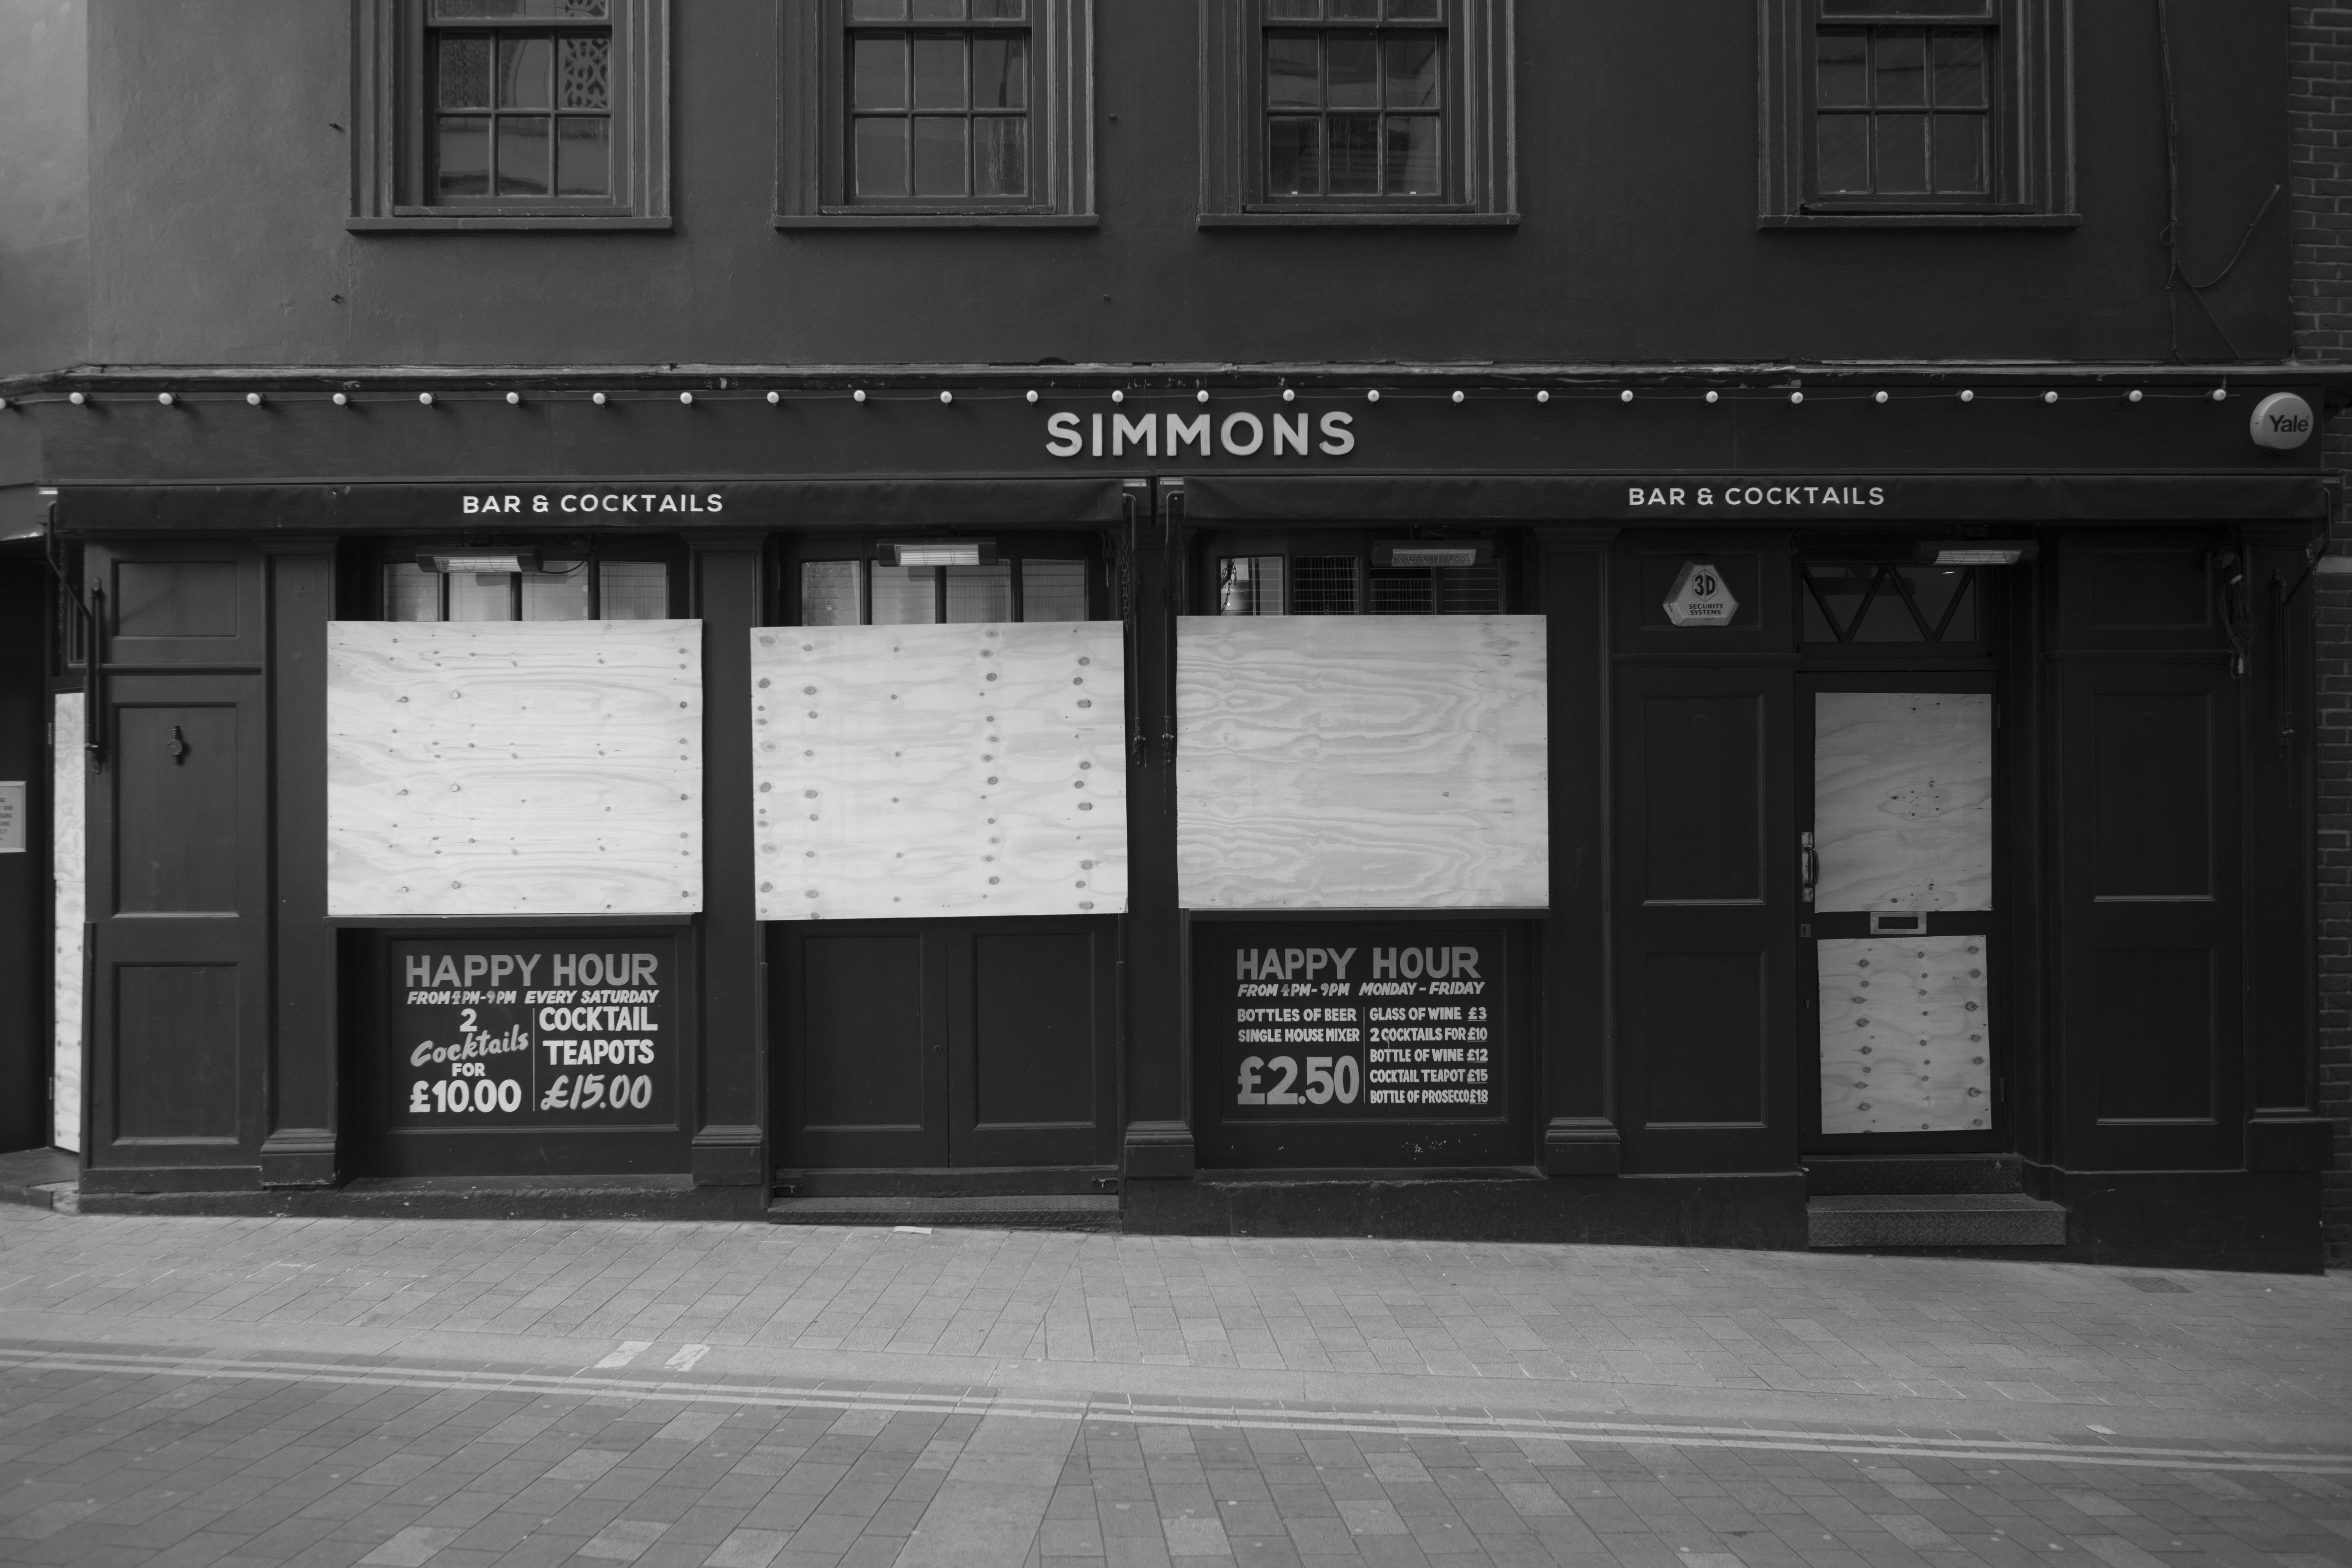 SIMMONS
Yale
BAR & COCKTAILS
BAR & COCKTAILS
3D
SECURITY
SYSTEMS
HAPPY HOUR
FROM 4PM-9PM EVERY SATURDAY
2
Cocktails
FOR
£10.00
COCKTAIL
TEAPOTS
£15.00
HAPPY HOUR
FROM 4PM-9PM MONDAY-FRIDAY
BOTTLES OF BEER
SINGLE HOUSE MIXER
£2.50
GLASS OF WINE £3
2 COCKTAILS FOR £10
BOTTLE OF WINE £12
COCKTAIL TEAPOT £15
BOTTLE OF PROSECCO £18